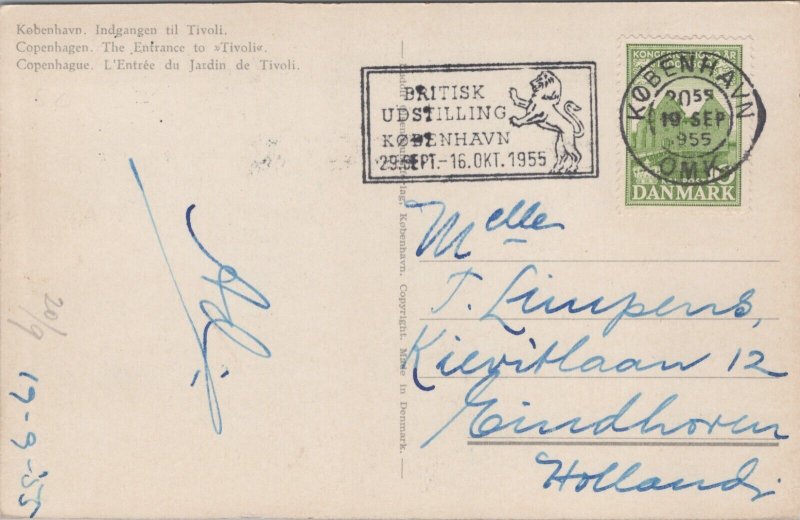 København. Indgangen til Tivoli.
Copenhagen. The Entrance to »Tivoli«.
Copenhague. L'Entrée du Jardin de Tivoli.
BRITISK
UDSTILLING
KØBENHAVN
29.SEPT.-16.OKT. 1955
KØBENHAVN
2055
19 SEP
955
OMK.
DANMARK
Melle
T. Limpens,
Kievitlaan 12
Eindhoven
Holland.
København. Copyright. Made in Denmark.
20/9
17-9-'55